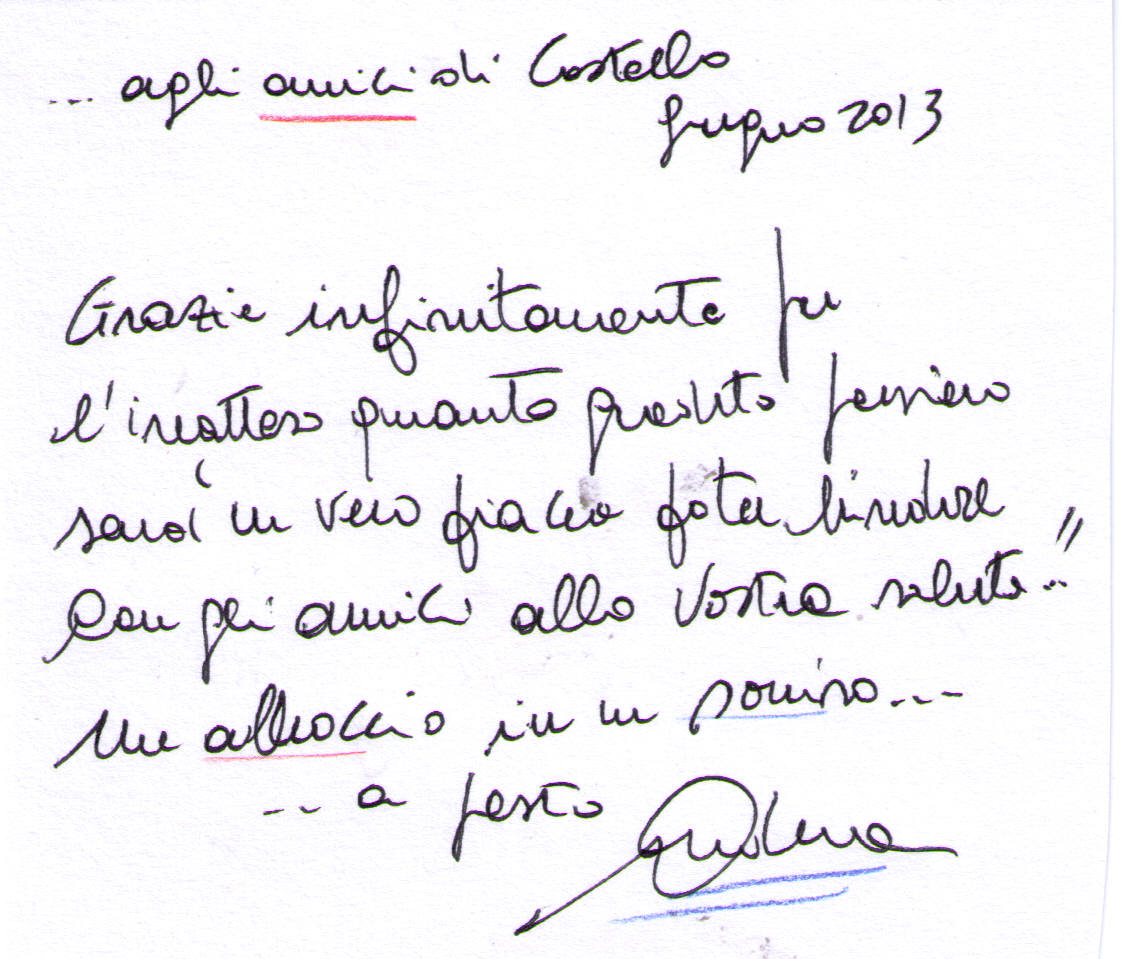 ... agli amici di Costello
giugno 2013
Grazie infinitamente per
l'inatteso quanto gradito pensiero
sarà un vero piacere poter brindare
con gli amici alla Vostra salute..."
Un abbraccio in un sorriso...
... a presto